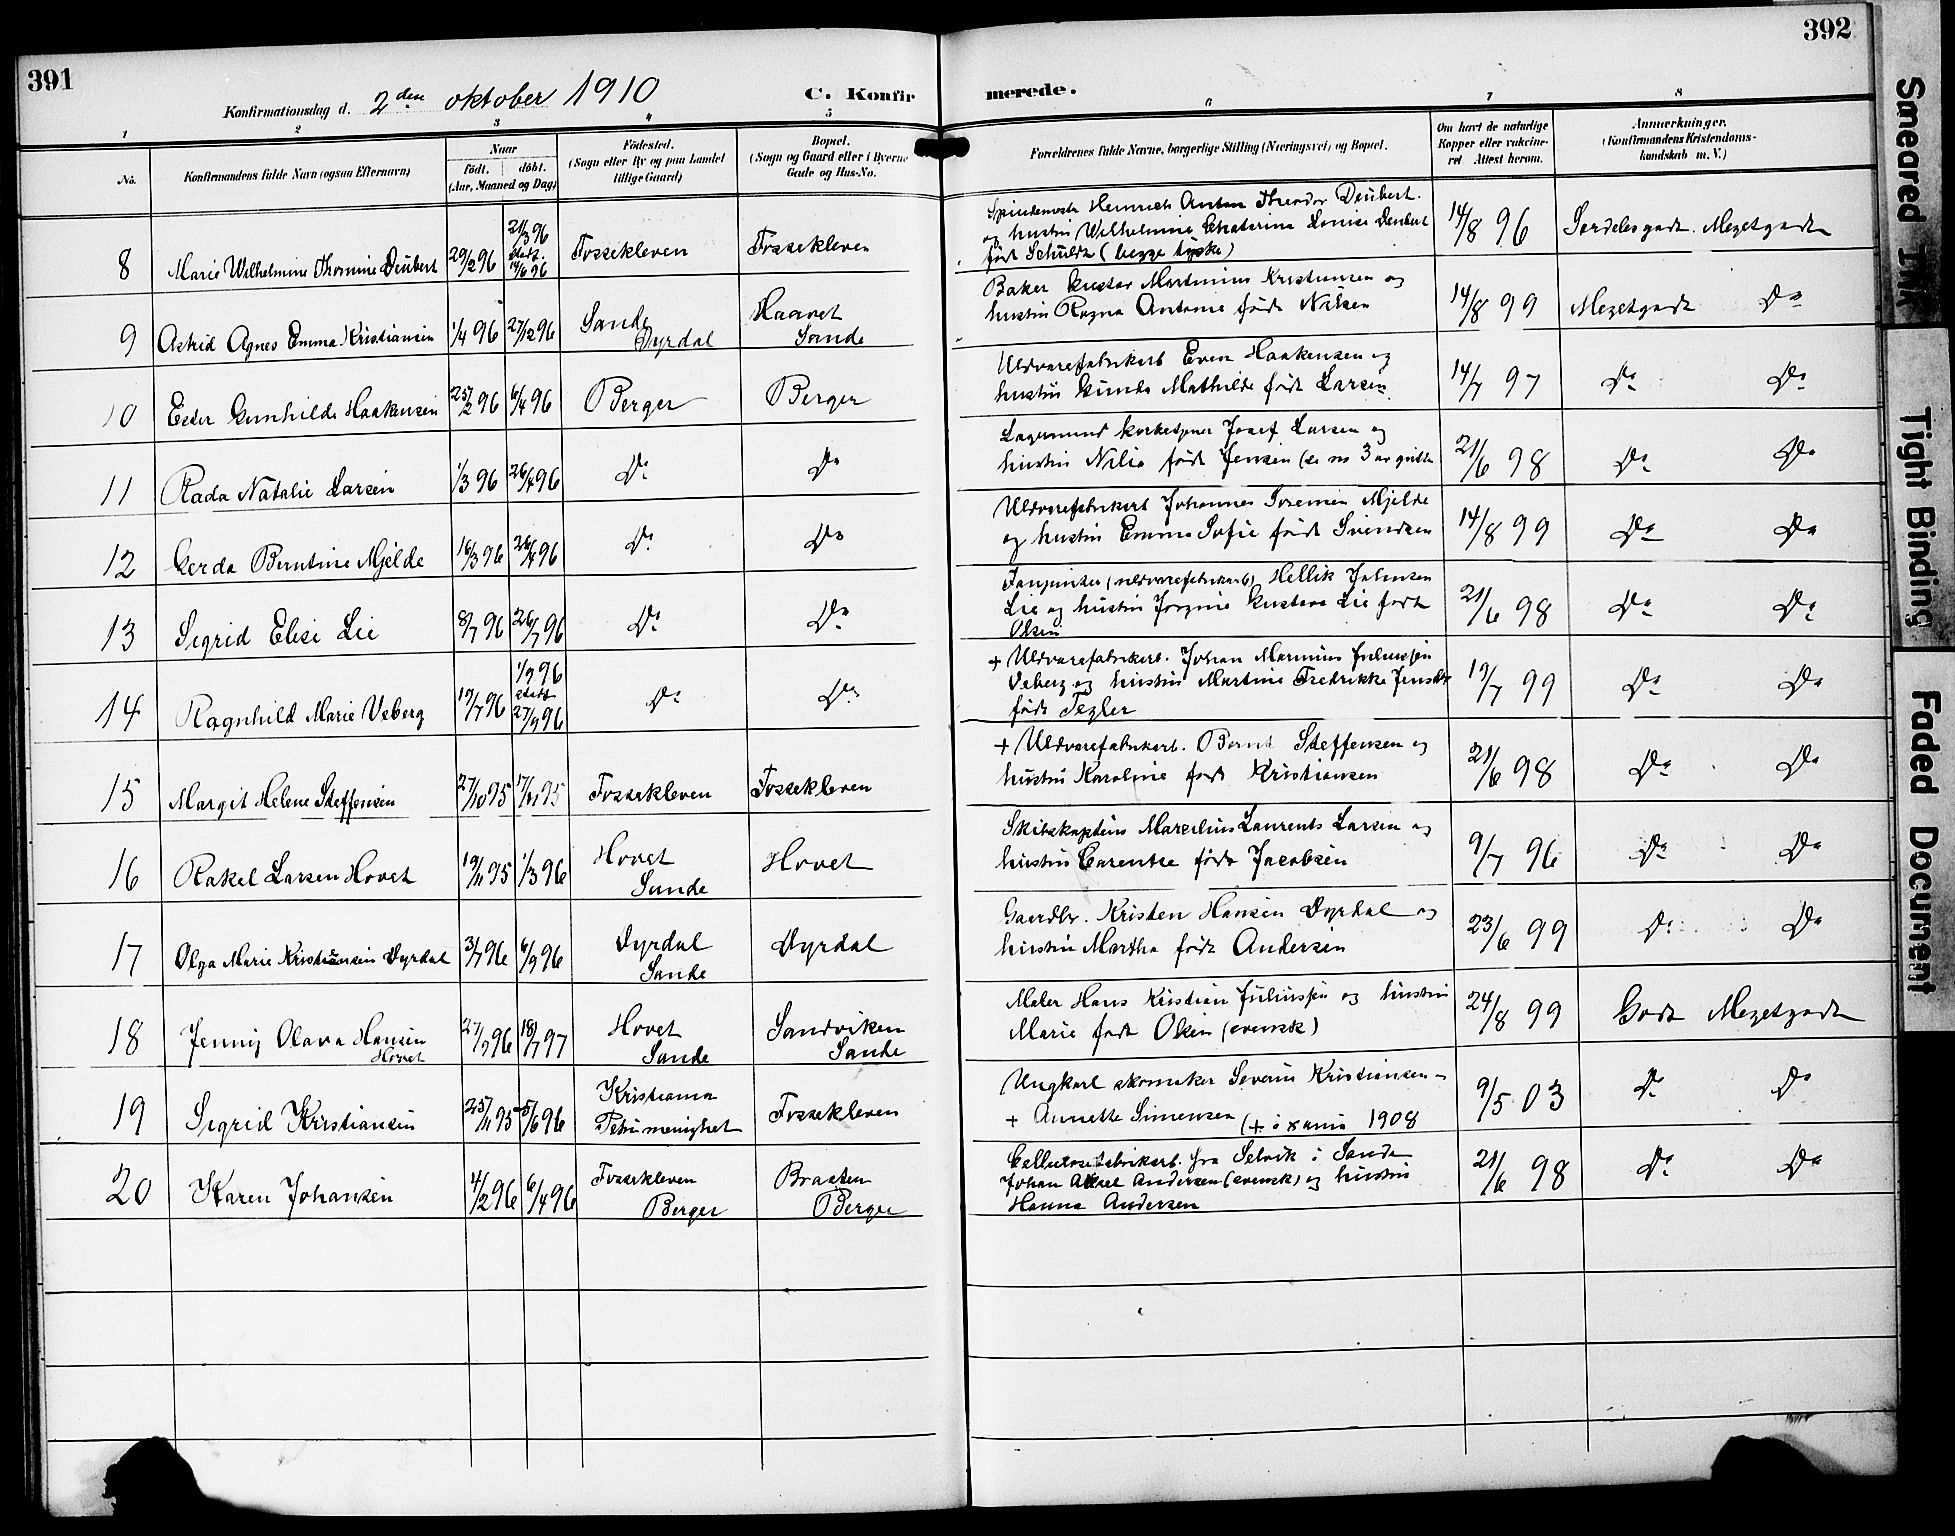 391
Konfirmationsdag d. 2den oktober 1910
C. Konfir
merede.
392
1
2
3
4
5
6
7
8
No.
Konfirmandens fulde Navn (ogsaa Efternavn)
Naar
født.
døbt.
(Aar, Maaned og Dag)
Fødested.
(Sogn eller By og paa Landet
tillige Gaard)
Bopæl.
(Sogn og Gaard eller i Byerne
Gade og Hus-No.
Forældrenes fulde Navne, borgerlige Stilling (Næringsvei) og Bopæl.
Om havt de naturlige
Kopper eller vakcine-
ret Attest herom.
Anmærkninger.
(Konfirmandens Kristendoms-
kundskab m. V.)
8 Marie Wilhelmine Thomine Deubert 29/2 96 21/3 96 stadf. 14/6 96 Fossekleven Fossekleven
Heinrich Anton Theodor Deubert
og hustru Wilhelmine Chatarina Louise Deubert
født Schuldt (begge tyske)
14/8 96 Serdelesgodt. Megetgodt
9 Astrid Agnes Emma Kristiansen 1/4 96 27/12 96 Sande Dyrdal Haavet Sande
Baker Gustav Martinius Kristiansen og
hustru Ragna Antonie født Nilsen
14/8 99 Megetgodt Do
10 Ester Gunhilde Haakensen 25/2 96 6/4 96 Berger Berger
Uldvarefabrikarb Even Haakensen og
hustru Gunda Mathilde født Larsen
14/7 97 Do Do
11 Rada Natalie Larsen 1/3 96 26/4 96 Do Do
Josef Larsen og
hustru Nilia født Jensen (se no 3 av gutter
21/6 98 Do Do
12 Gerda Berntine Mjelde 16/3 96 26/4 96 Do Do
Uldvarefabrikarb Johannes Sorensen Mjelde
og hustru Emma Sofie født Svendsen
14/8 99 Do Do
13 Sigrid Elise Lie 8/7 96 26/7 96 Do Do
(uldvarefabrikarb) Hellik Johansen
Lie og hustru Jorgine Gustava Lie født
Olsen
21/6 98 Do Do
14 Ragnhild Marie Veberg 19/7 96 1/9 96 stadf 27/9 96 Do Do
+ Uldvarefabrikarb. Johan Marinius Juliussen
Veberg og hustru Martine Fredrikke
født Tegler
19/7 99 Do Do
15 Margit Helene Steffensen 27/10 95 17/11 95 Fossekleven Fossekleven
+ Uldvarefabrikarb. Bernt Steffensen og
hustru Karoline født Kristiansen
21/6 98 Do Do
16 Rakel Larsen Hovet 19/11 95 1/3 96 Hovet Sande Hovet
Skibskaptein Marselius Laurents Larsen og
hustru Carentse født Jacobsen
9/7 96 Do Do
17 Olga Marie Kristiansen Dyrdal 3/7 96 6/9 96 Dyrdal Sande Dyrdal
Gaardbr. Kristen Hansen Dyrdal og
hustru Martha født Andersen
23/6 99 Do Do
18 Jenny Olava Hansen Hovet 27/9 96 18/7 97 Hovet Sande Sandviken Sande
Maler Hans Kristian Juliussen og hustru
Marie født Olsen (svensk)
24/8 99 Godt Megetgodt
19 Sigrid Kristiansen 25/11 95 5/6 96 Kristiania Petrimenighet Fossekleven
Ungkarl skomaker Severin Kristiansen -
+ Annette Simensen (+ i xania 1908
9/5 03 Do Do
20 Karen Johansen 4/2 96 6/4 96 Fossekleven Berger Braaten Berger
Cellulosefabrikarb. fra Selvik i Sande
Johan Aksel Andersen (svensk) og hustru
Hanna Andersen
21/6 98 Do Do
Smeared Ink
Tight Binding
Faded Document